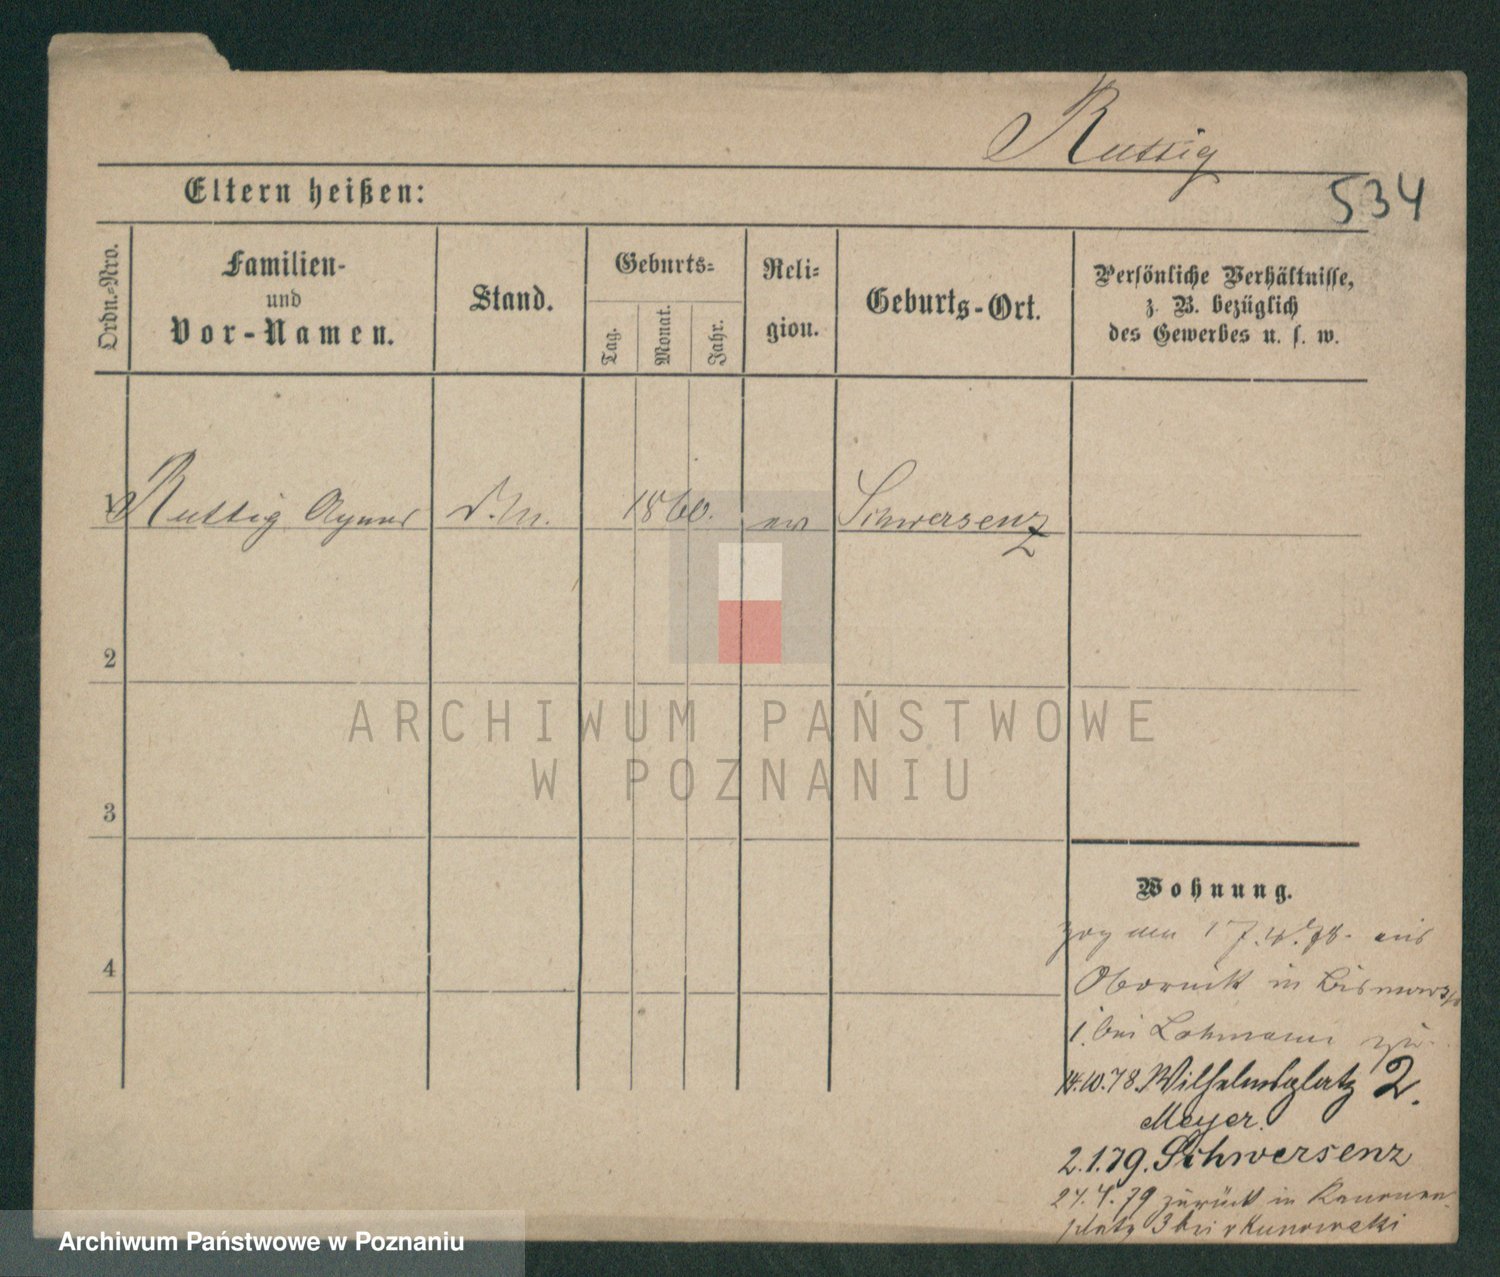 Ruttig
534
Eltern heißen:
Ordn.-Nro.
Familien-
und
Vor-Namen.
Stand.
Geburts-
Tag.
Monat.
Jahr.
Reli-
gion.
Geburts-Ort.
Persönliche Verhältnisse,
z. B. bezüglich
des Gewerbes u. s. w.
1 Ruttig Agnes D.M. 1860. ev Schwersenz
2
3
4
Wohnung.
zog am 17.4.78. aus
Obornick in
1. bei Lohmann zu.
14.10.78. Wilhelmsplatz 2.
Meyer.
2.1.79. Schwersenz
27.4.79 zurück in Kanonen
platz 3 bei v Kunowski
ARCHIWUM PAŃSTWOWE
W POZNANIU
Archiwum Państwowe w Poznaniu